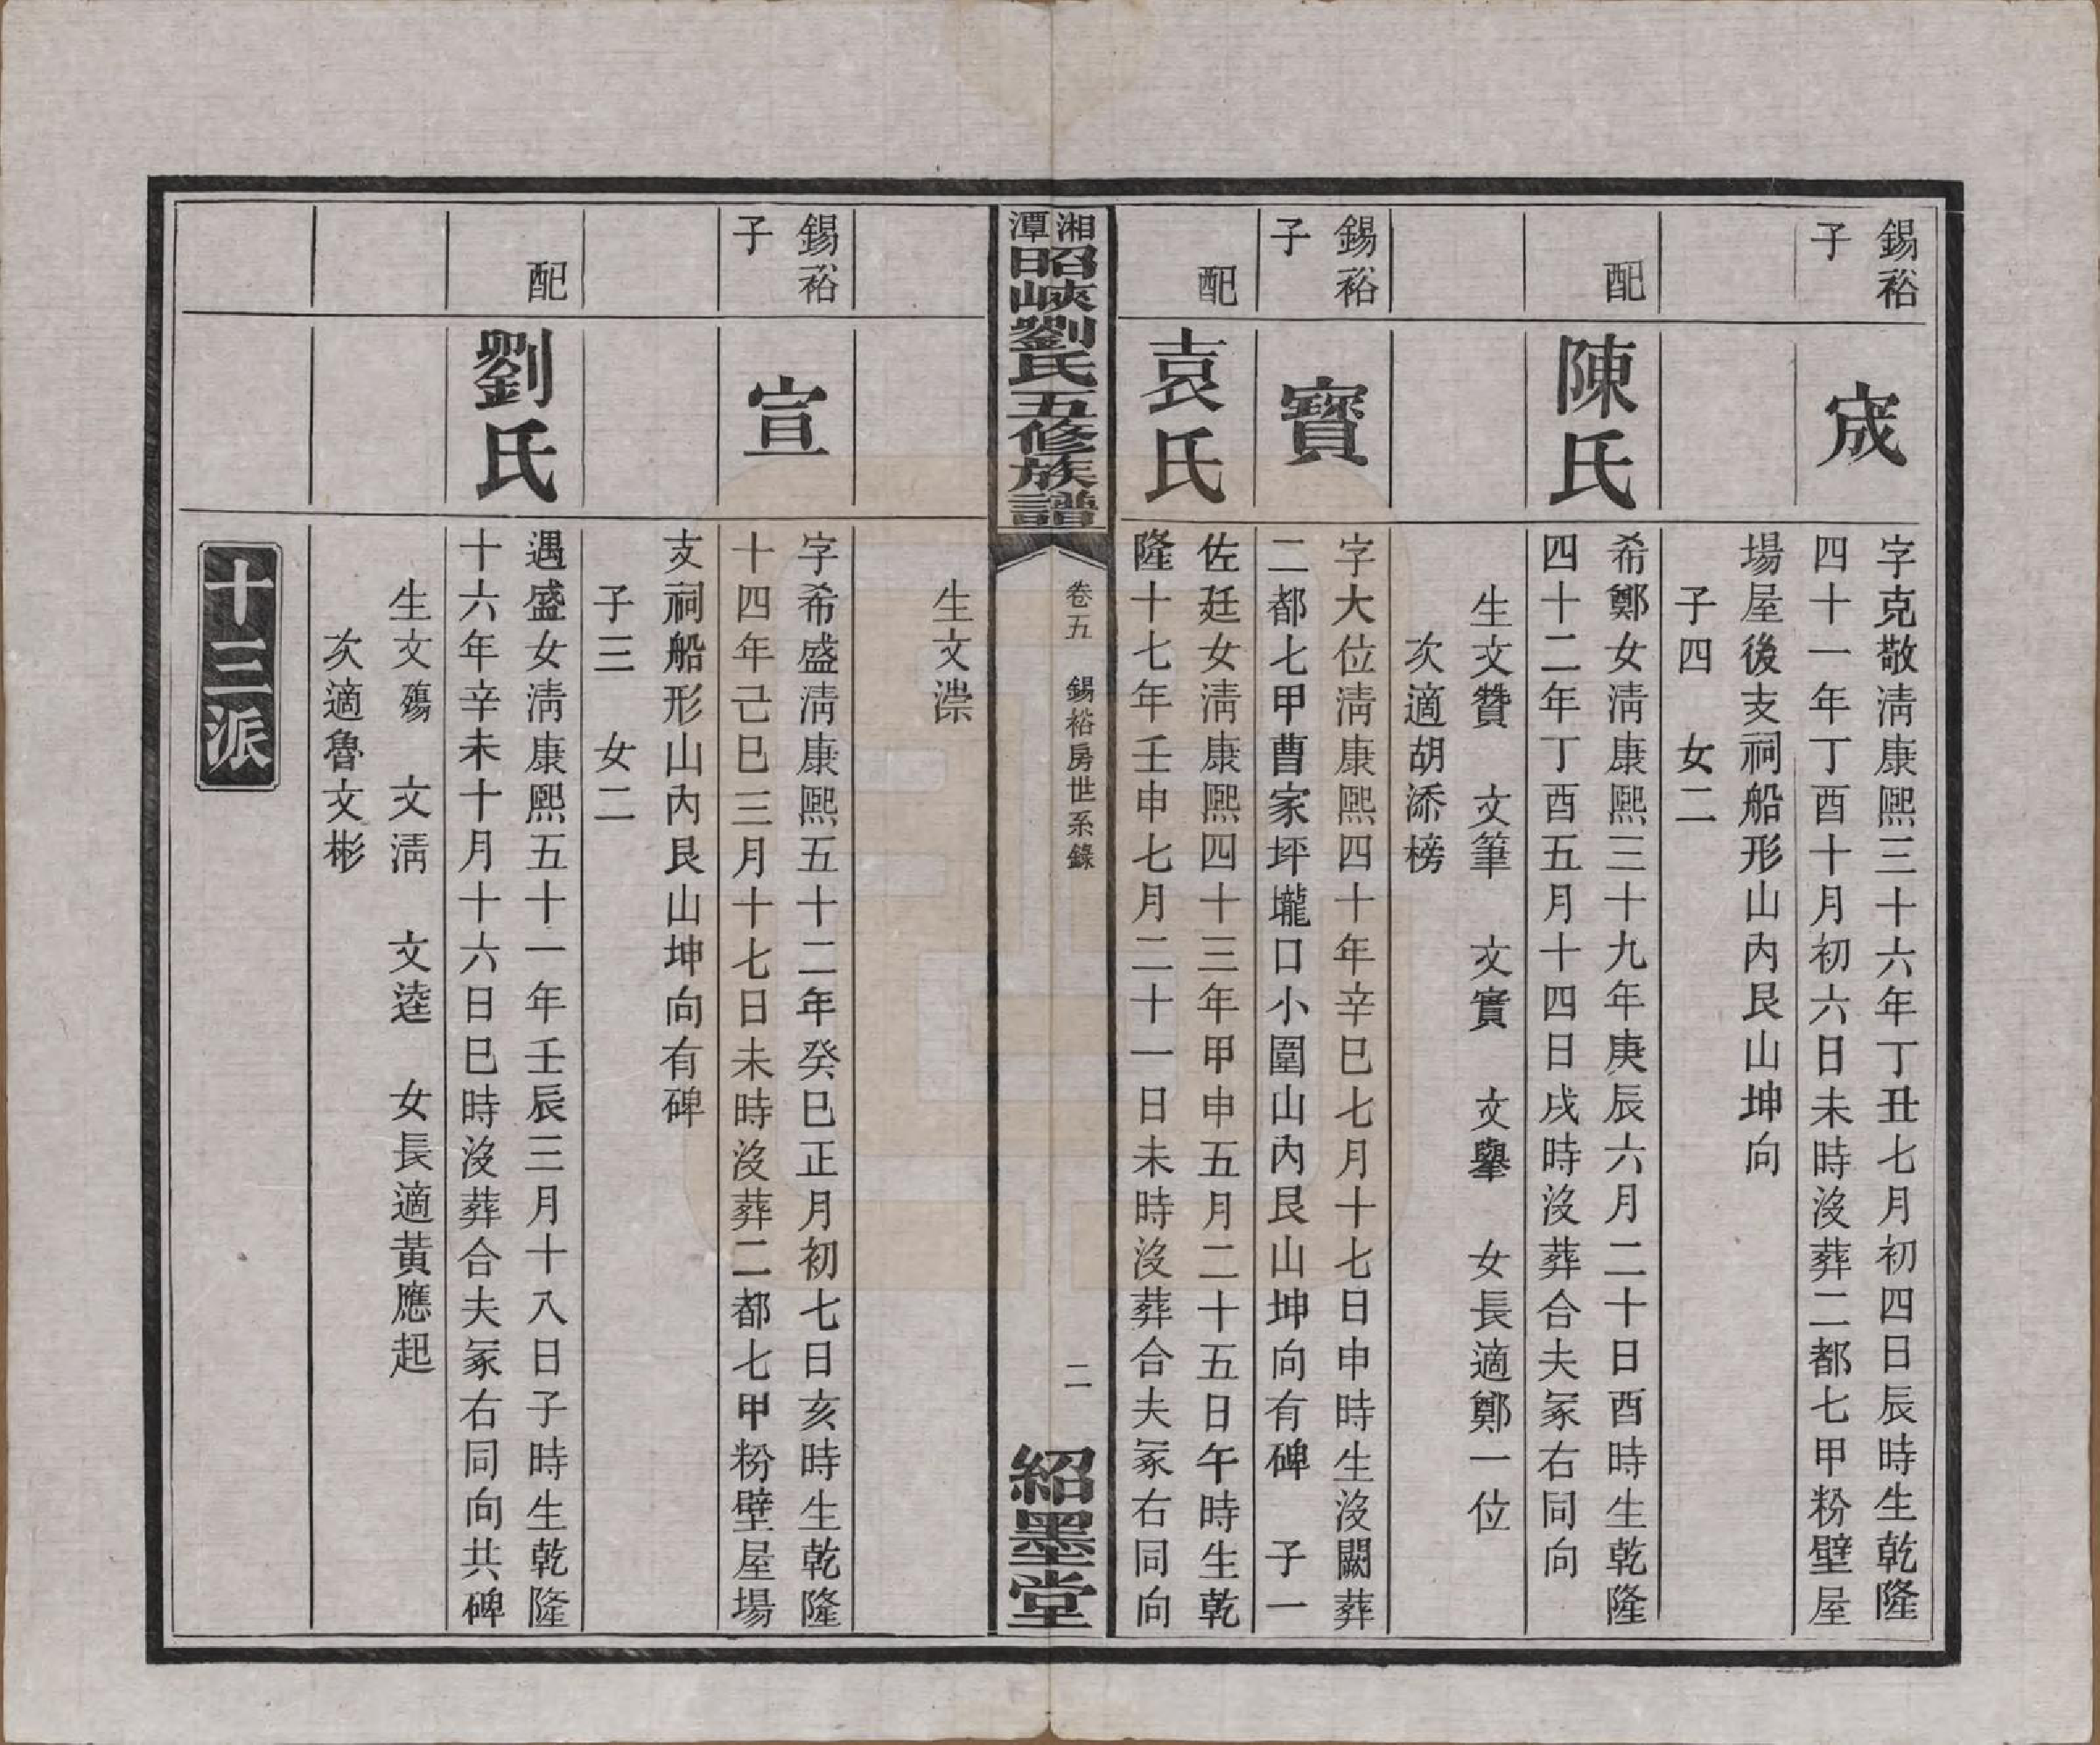 錫裕
子
宬
字克敬淸康熙三十六年丁丑七月初四日辰時生乾隆
四十一年丁酉十月初六日未時沒葬二都七甲粉壁屋
場屋後支祠船形山內艮山坤向
子四　女二
配
陳氏
希鄭女淸康熙三十九年庚辰六月二十日酉時生乾隆
四十二年丁酉五月十四日戌時沒葬合夫冢右同向
生文贊　文筆　文實　文舉　女長適鄭一位
次適胡添榜
錫裕
子
寶
字大位淸康熙四十年辛巳七月十七日申時生沒闕葬
二都七甲曹家坪壠口小圍山內艮山坤向有碑　子一
配
袁氏
佐廷女淸康熙四十三年甲申五月二十五日午時生乾
隆十七年壬申七月二十一日未時沒葬合夫冢右同向
湘潭昭峽劉氏五修族譜
卷五　錫裕房世系錄
二
紹墨堂
生文漴
錫裕
子
宣
字希盛淸康熙五十二年癸巳正月初七日亥時生乾隆
十四年己巳三月十七日未時沒葬二都七甲粉壁屋場
支祠船形山內艮山坤向有碑
子三　女二
配
劉氏
遇盛女淸康熙五十一年壬辰三月十八日子時生乾隆
十六年辛未十月十六日巳時沒葬合夫冢右同向共碑
生文殤　文淸　文逵　女長適黃應起
次適魯文彬
十三派